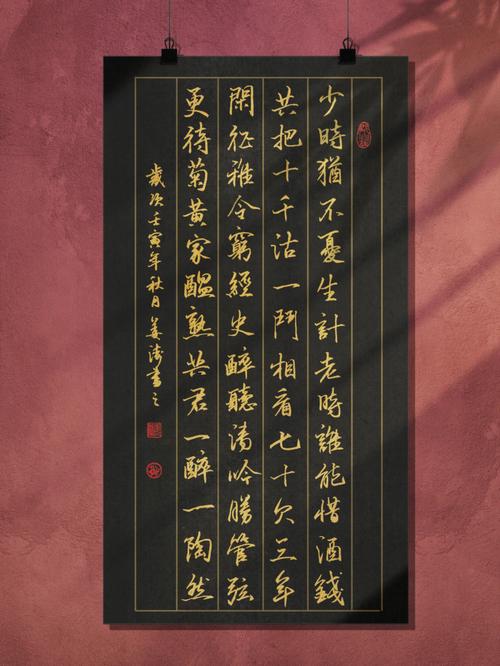 少時猶不憂生計老時誰能惜酒錢
共把十千沽一鬥相看七十欠三年
閑征雅令窮經史醉聽清吟勝管弦
更待菊黃家醞熟共君一醉一陶然
歲次壬寅年秋月姜濤書之